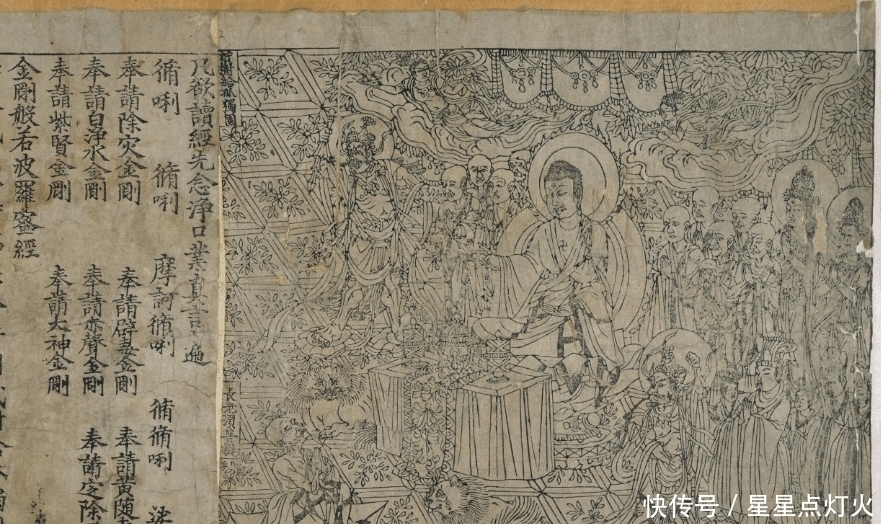 祇樹給孤獨園
長老須菩提
凡欲讀經先念淨口業真言遍
脩唎 脩唎 摩訶脩唎 脩脩唎
奉請除灾金剛 奉請辟毒金剛 奉請黃隨
奉請白淨水金剛 奉請赤聲金剛 奉請定除
奉請紫賢金剛 奉請大神金剛
金剛般若波羅蜜經
快传号 / 星星点灯火